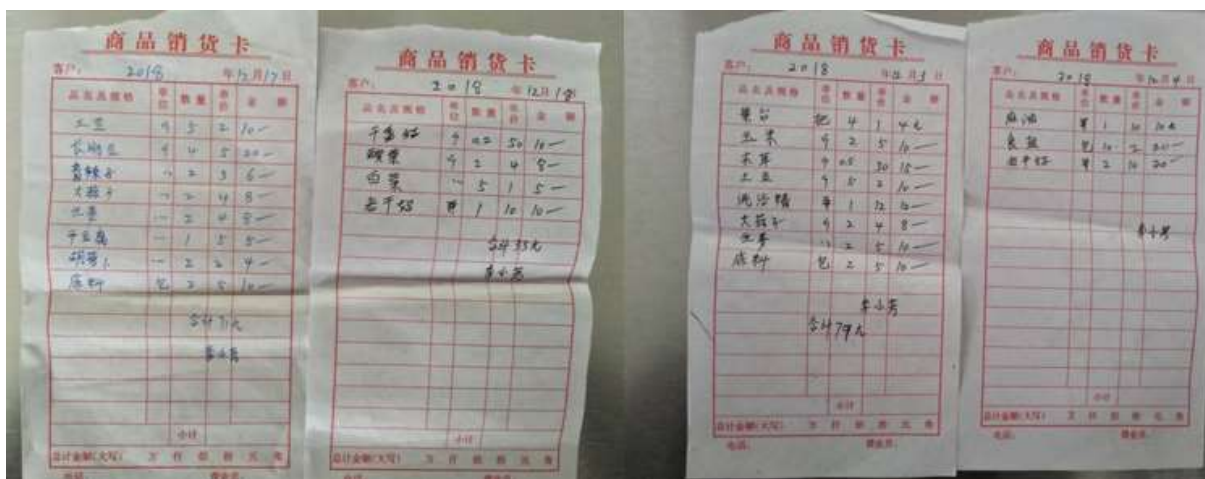 商品销货卡
客户： 2018 年12月17日
品名及规格 单位 数量 单价 金额
土豆 5 2 10—
长胡豆 4 5 20—
青辣子 2 3 6—
大茄子 2 4 8—
2 4 8—
干豆腐 1 5 5—
2 2 4—
底料 包 2 5 10—
合计71元
李小芳
小计
总计金额(大写) 万 仟 佰 拾 元 角
商品销货卡
客户： 2018 年12月18日
品名及规格 单位 数量 单价 金额
0.2 50 10—
2 4 8—
白菜 5 1 5—
老干妈 1 10 10—
合计35元
李小芳
小计
总计金额(大写) 万 仟 佰 拾 元 角
商品销货卡
客户： 2018 年12月3日
品名及规格 单位 数量 单价 金额
把 4 1 4元
玉米 2 5 10—
木耳 0.5 30 15—
土豆 5 2 10—
洗洁精 1 12 12—
大茄子 2 4 8—
2 5 10—
底料 包 2 5 10—
李小芳
合计79元
小计
总计金额(大写) 万 仟 佰 拾 元 角
电话： 营业员：
商品销货卡
客户： 2018 年12月4日
品名及规格 单位 数量 单价 金额
麻油 1 10 10元
食盐 包 10 2 20—
老干妈 2 10 20—
李小芳
小计
总计金额(大写) 万 仟 佰 拾 元 角
电话： 营业员：